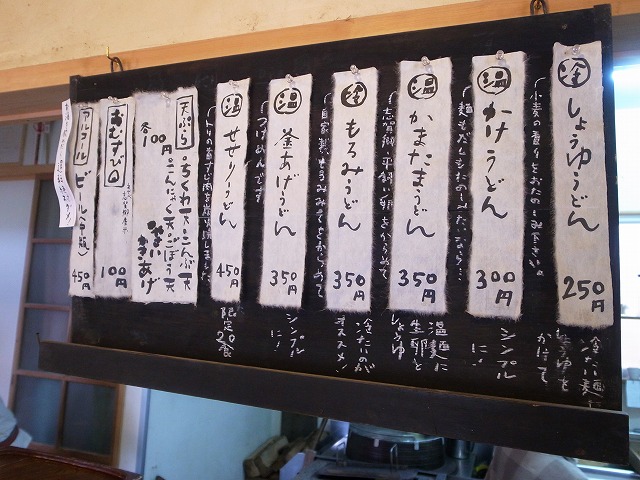 冷
しょうゆうどん
250円
小麦の香りをおたのしみ下さい。
冷たい麺に
生じょうゆを
かけて
温
かけうどん
300円
麺もだしもたのしみたいなら…
シンプル
に!
温
かまたまうどん
350円
志賀郷・平飼い卵をからめて
温麺に
生卵と
しょうゆ
冷
もろみうどん
350円
自家製もろみみそをからめて
冷たいのが
オススメ
温
釜あげうどん
350円
つけめんです
シンプル
に!
温
せせりうどん
450円
限定20食
天ぷら
各100円
・ちくわ天・こんぶ天
・こんにゃく天・ごぼう天
・やさい
かきあげ
おむすび
100円
アルコール
ビール(中瓶)
450円